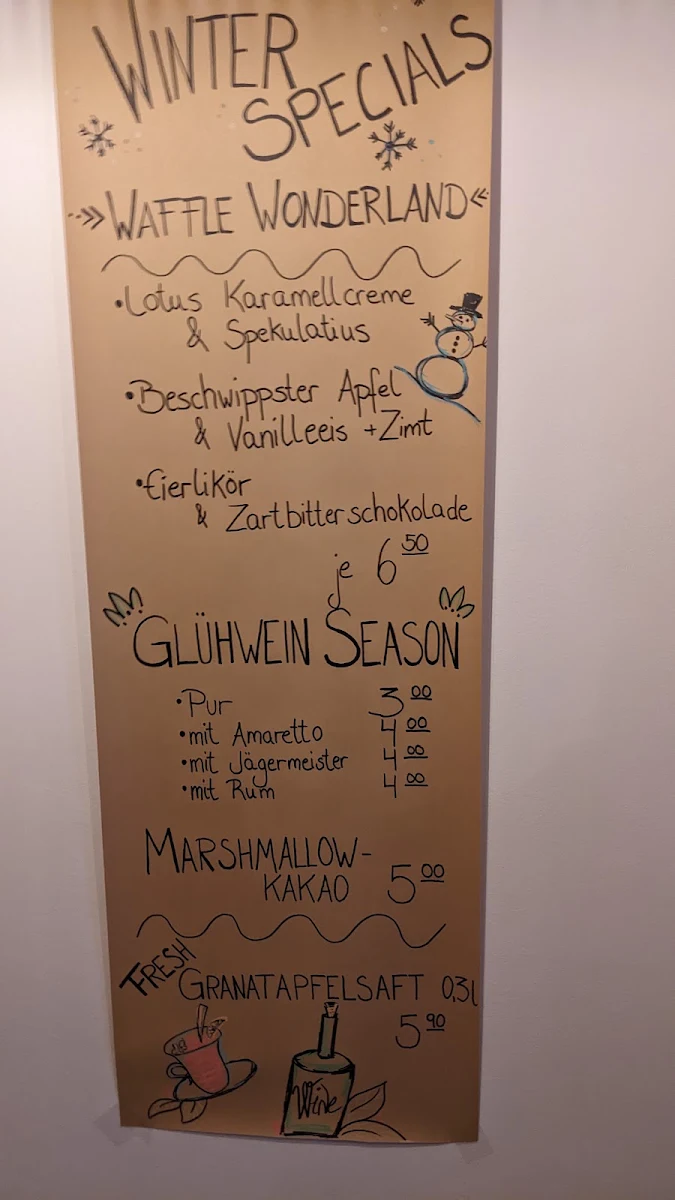 WINTER
SPECIALS
WAFFLE WONDERLAND
•Lotus Karamellcreme
& Spekulatius
•Beschwippster Apfel
& Vanilleeis +Zimt
•Eierlikör
& Zartbitterschokolade
je 6 50
GLÜHWEIN SEASON
•Pur 3 00
•mit Amaretto 4 00
•mit Jägermeister 4 00
•mit Rum 4 00
MARSHMALLOW-
KAKAO 5 00
FRESH
GRANATAPFELSAFT 0,3l
5 90
Wine